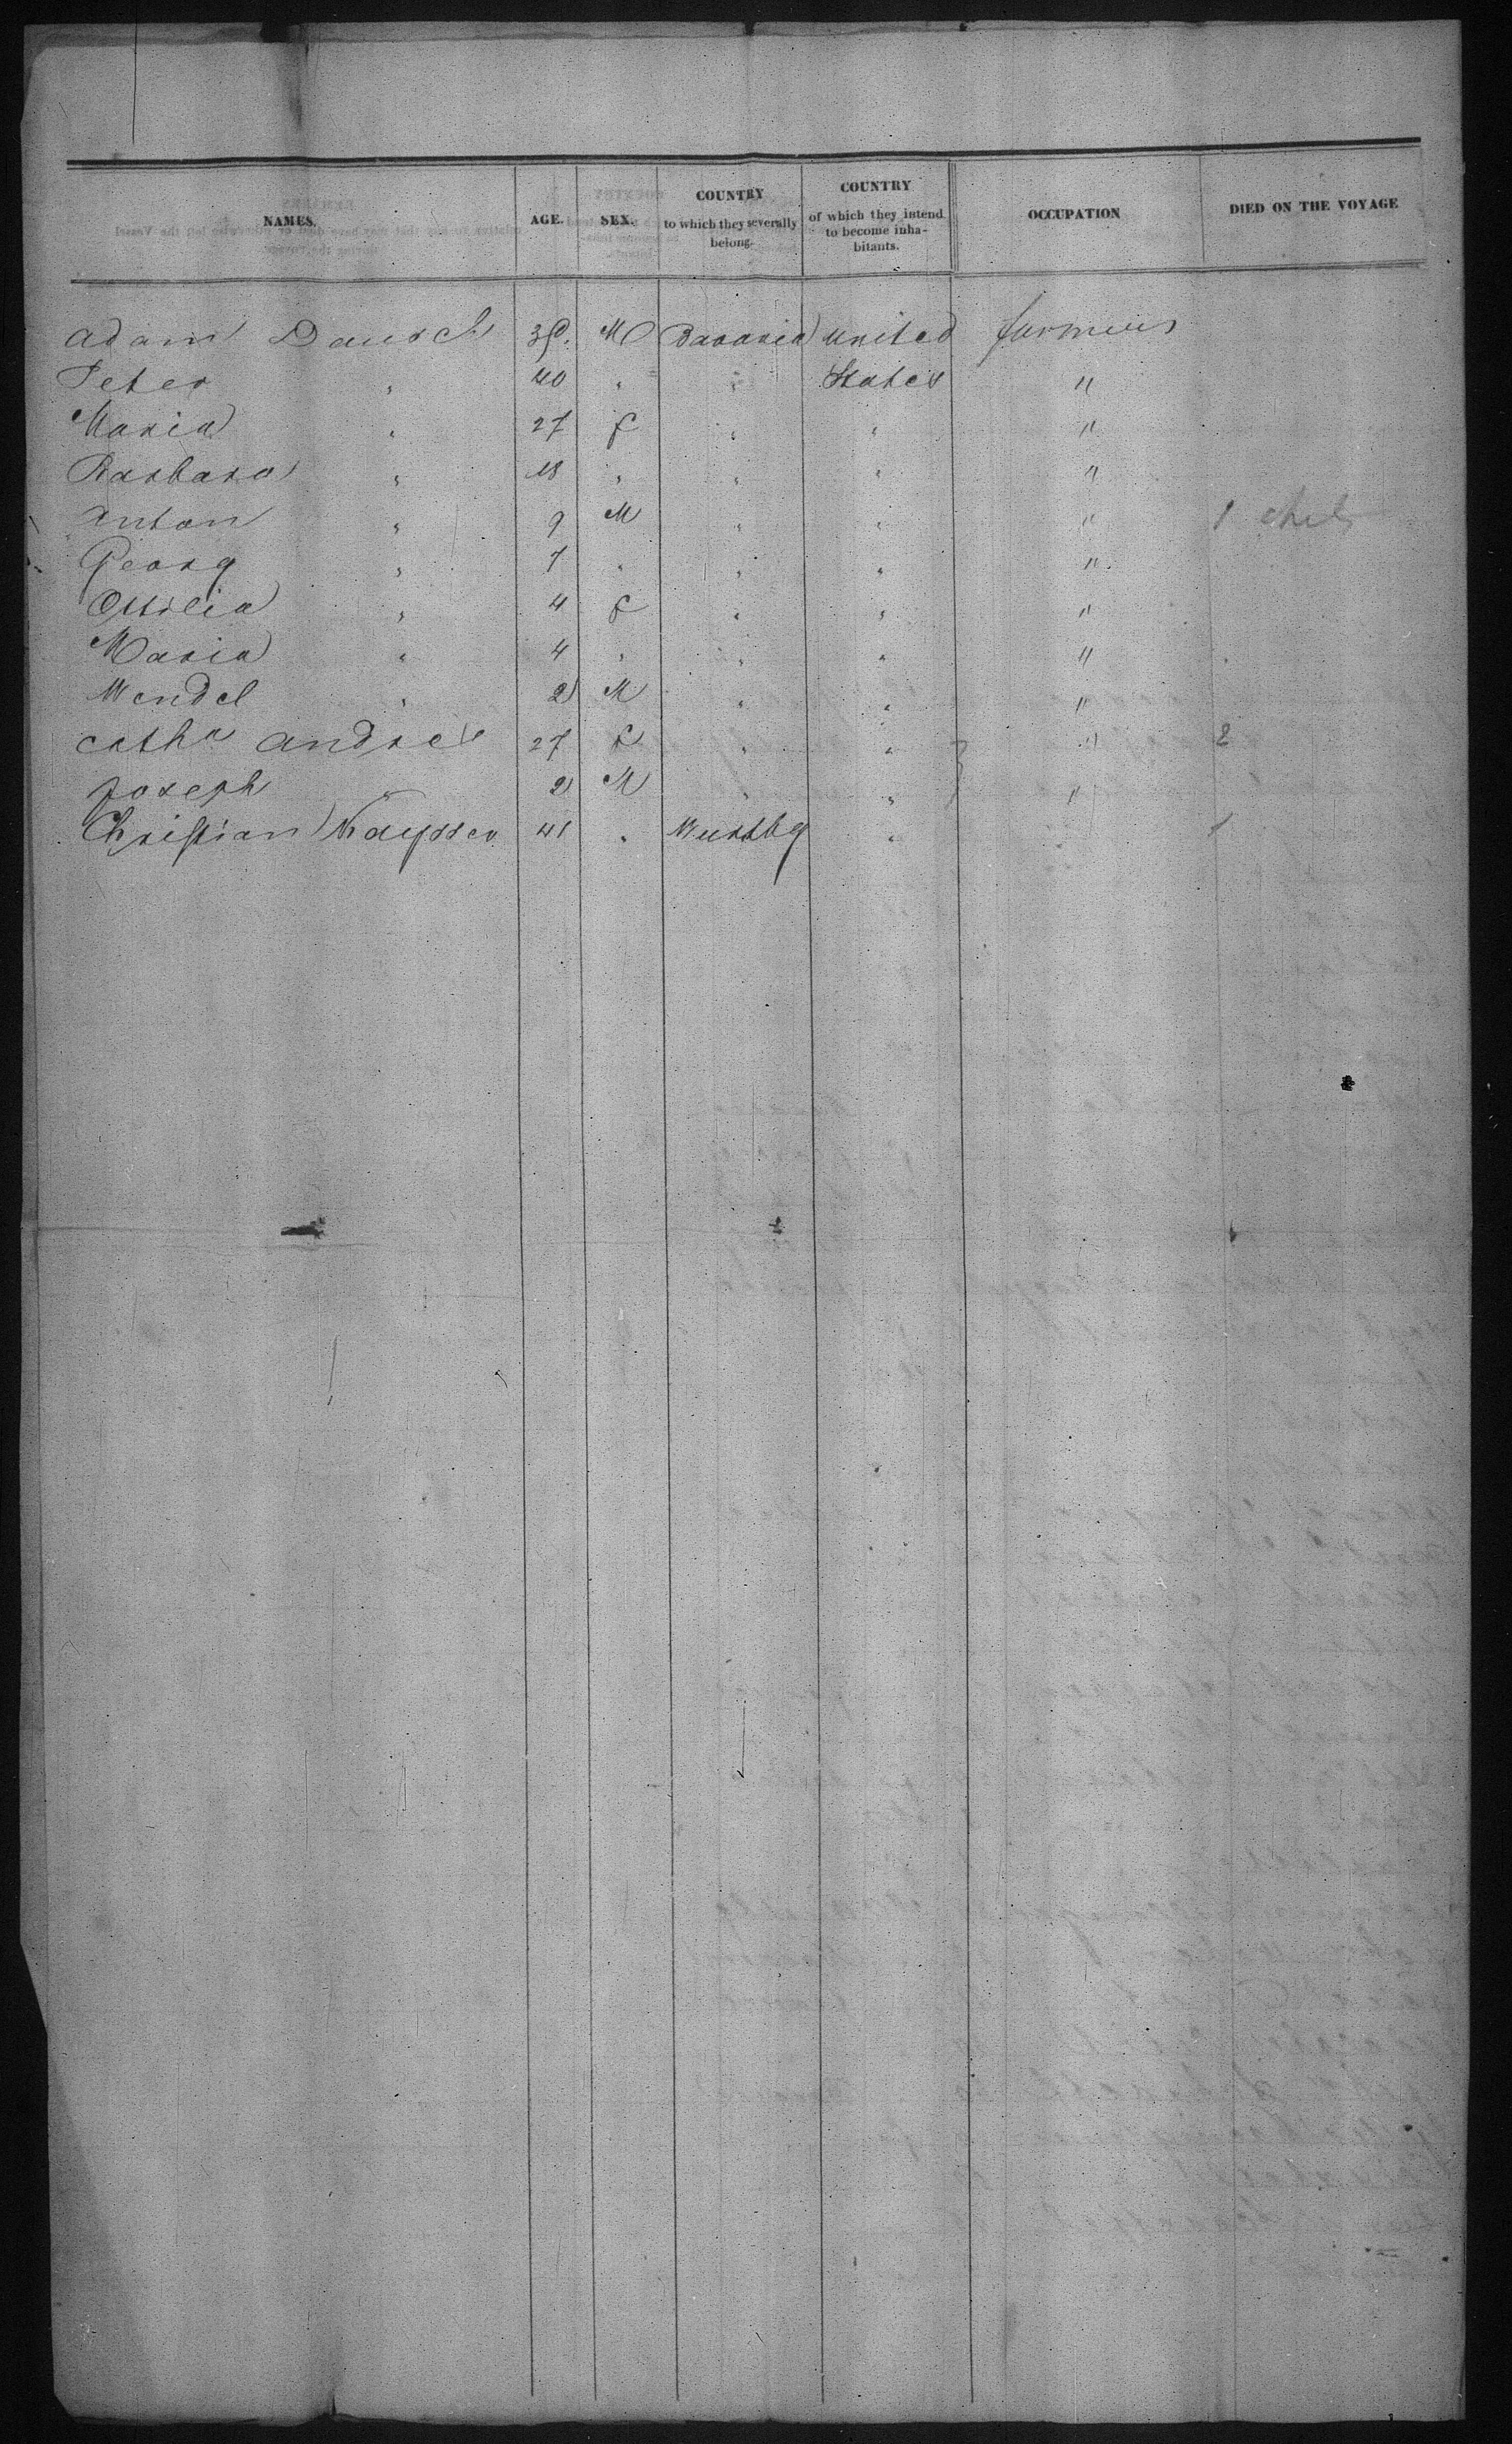 NAMES. AGE. SEX. COUNTRY to which they severally belong. COUNTRY of which they intend to become inhabitants. OCCUPATION DIED ON THE VOYAGE
Adam Dausch M Bavaria United farmers
Peter " 40 " " States "
Maria " 27 F " " "
Barbara " 18 " " " "
Anton " 9 M " " " 1
Georg " 7 " " " "
Ottilia " 4 F " " "
Maria " 4 " " " "
Wendel " 2 M " " "
Catha 27 F " " " 2
Joseph " 2 M " " "
Christian Kaysser 41 " Wurtbg " 1